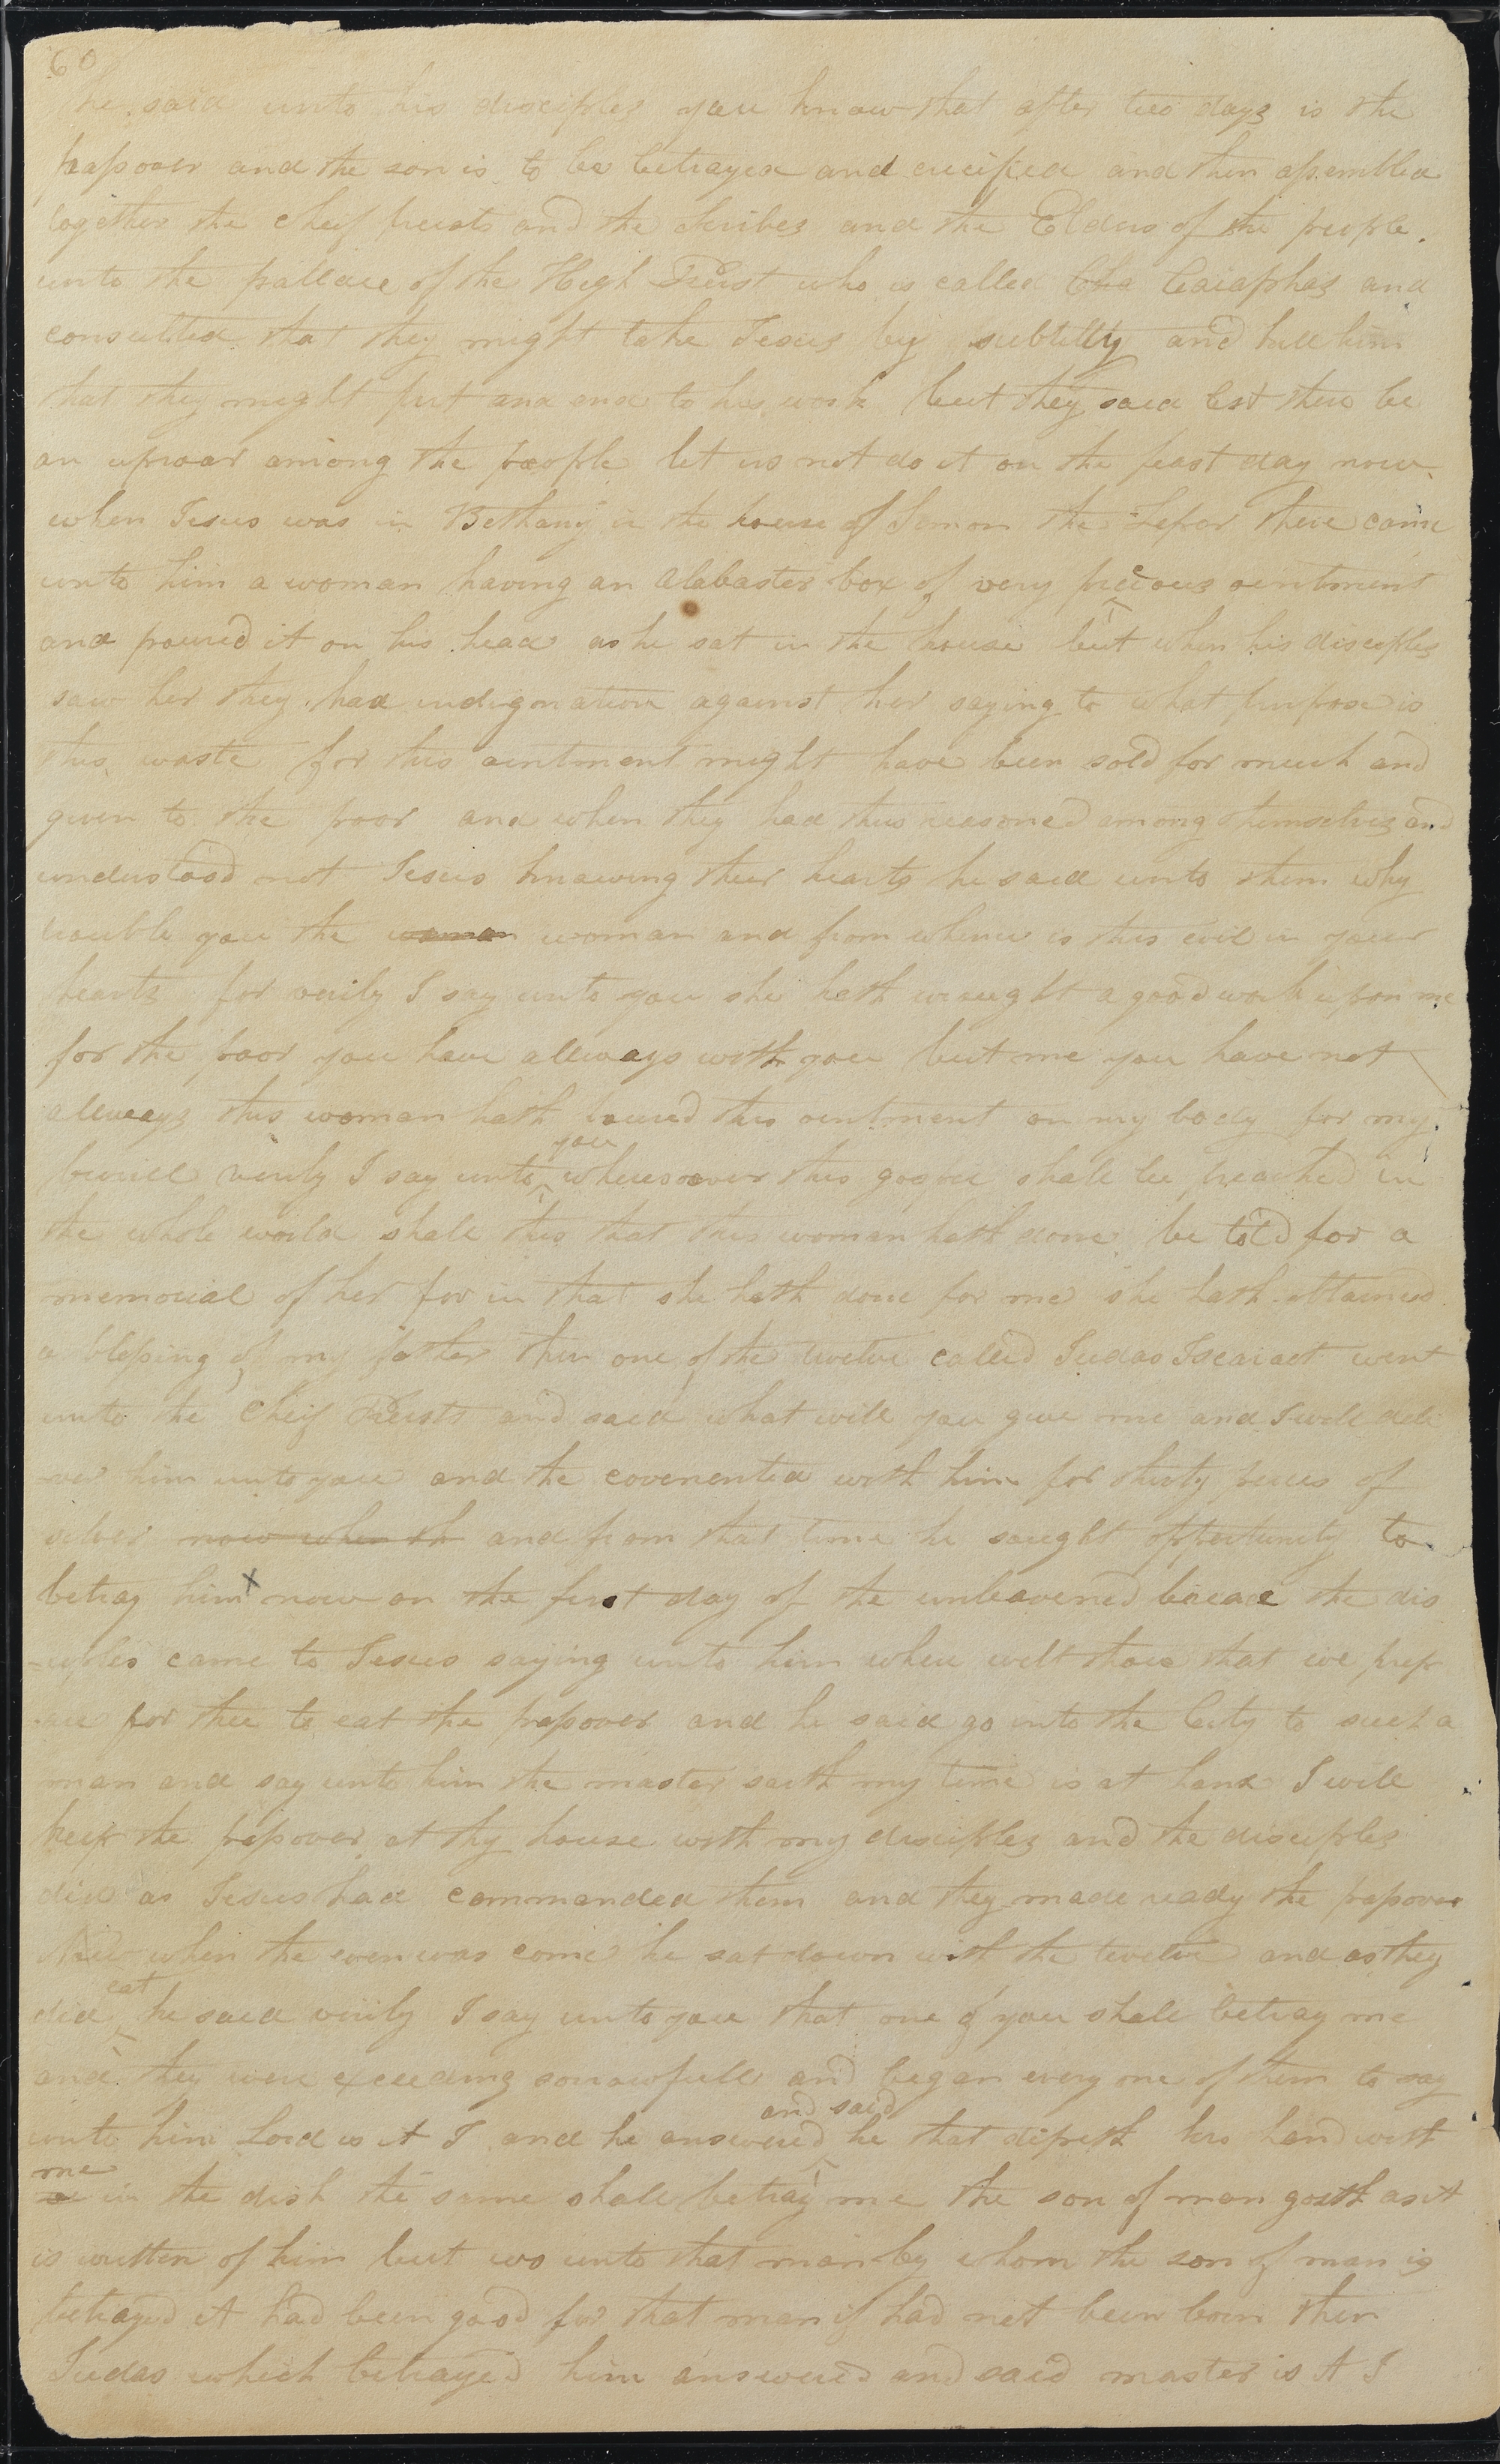 60
he said unto his disciples you know that after two days is the
passover and the son is to be betrayed and crucified and then assembled
together the cheif preists and the scribes and the Elders of the people
unto the pallace of the High Preist who is called Cha Caiaphas and
consulted that they might take Jesus by subtilty and kill him
that they might put and end to his work but they said lest there be
an uproar among the people let us not do it on the feast day now
when Jesus was in Bethany in the house of Simon the Leper there came
unto him a woman having an alabaster box of very precious ointment
and poured it on his head as he sat in the house but when his disciples
saw her they had indignation against her saying to what purpose is
this waste for this ointment might have been sold for much and
given to the poor and when they had thus reasoned among themselves and
understood not Jesus knowing their hearts he said unto them why
trouble you the woman woman and from whence is this evil in your
hearts for verily I say unto you she hath wrought a good work upon me
for the poor you have allways with you but me you have not
allways this woman hath poured this ointment on my body for my
buriel verily I say unto you wheresoever this gospel shall be preached in
the whole world shall this that this woman hath done be told for a
memorial of her for in that she hath done for me she hath obtained
a blessing of my father then one of the twelve called Judas Iscariot went
unto the cheif Preists and said what will you give me and I will deli
-ver him unto you and the covenented with him for thirty peices of
silver now when th and from that time he saught oppertunity to
betray him x now on the first day of the unleavened bread the dis
=ciples came to Jesus saying unto him where wilt thou that we prep
-are for thee to eat the passover and he said go into the City to such a
man and say unto him the master saith my time is at hand I will
keep the passover at thy house with my disciples and the disciples
did as Jesus had commanded them and they made ready the passover
now when the even was come he sat down with the twelve and as they
did eat he said verily I say unto you that one of you shall betray me
and they were exceeding sorrowfull and began every one of them to say
unto him Lord is it I and he answered and said he that dipeth his hand with
me in the dish the same shall betray me the son of man goeth as it
is written of him but wo unto that man by whom the son of man is
betrayed it had been good for that man if had not been born then
Judas which betrayed him answered and said master is it I